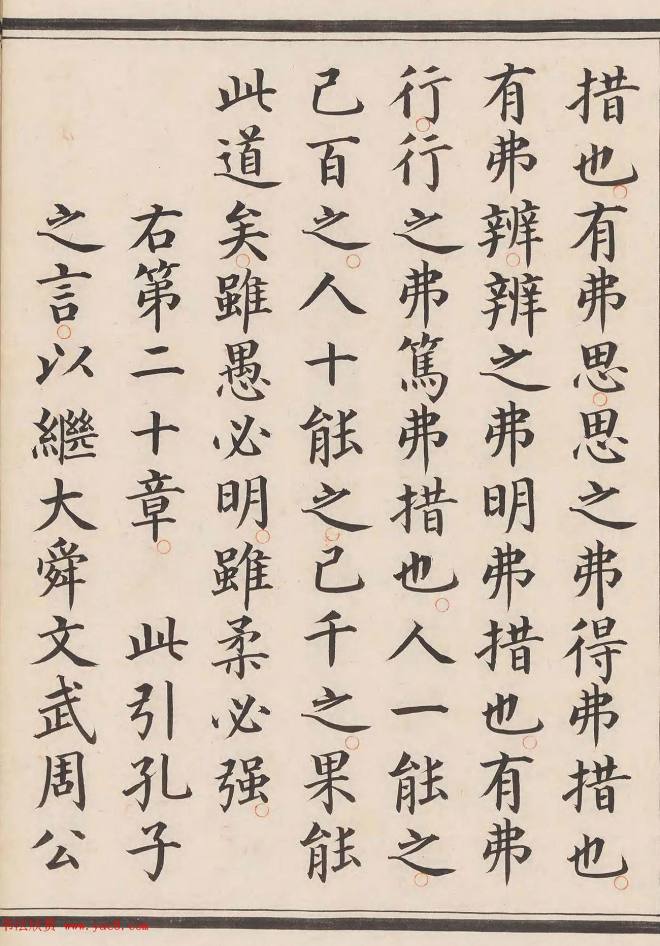 措也有弗思思之弗得弗措也
有弗辨辨之弗明弗措也有弗
行行之弗篤弗措也人一能之
己百之人十能之己千之果能
此道矣雖愚必明雖柔必强
右第二十章 此引孔子
之言以繼大舜文武周公
书法欣赏 www.yac8.com